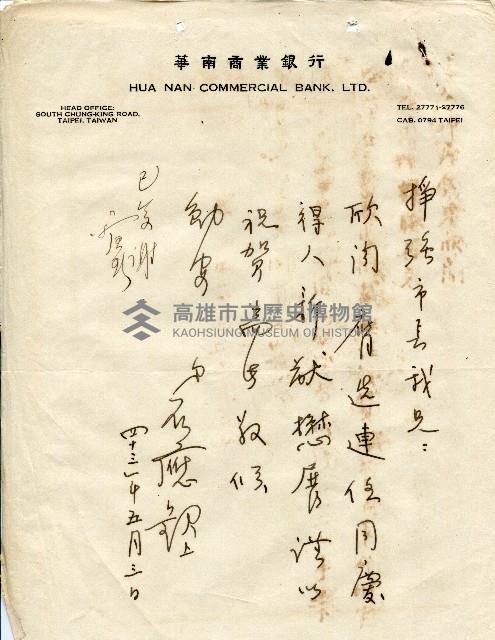 華南商業銀行
HUA NAN COMMERCIAL BANK, LTD.
HEAD OFFICE:
SOUTH CHUNG-KING ROAD,
TAIPEI, TAIWAN
TEL. 27771-27776
CAB. 0794 TAIPEI
掙強市長我兄：
欣聞膺選連任同慶
得人新猷懋展謹以
祝賀專此敬候
勛安
弟石應鈊上
四十三年五月三日
已復謝
高雄市立歷史博物館
KAOHSIUNG MUSEUM OF HISTORY